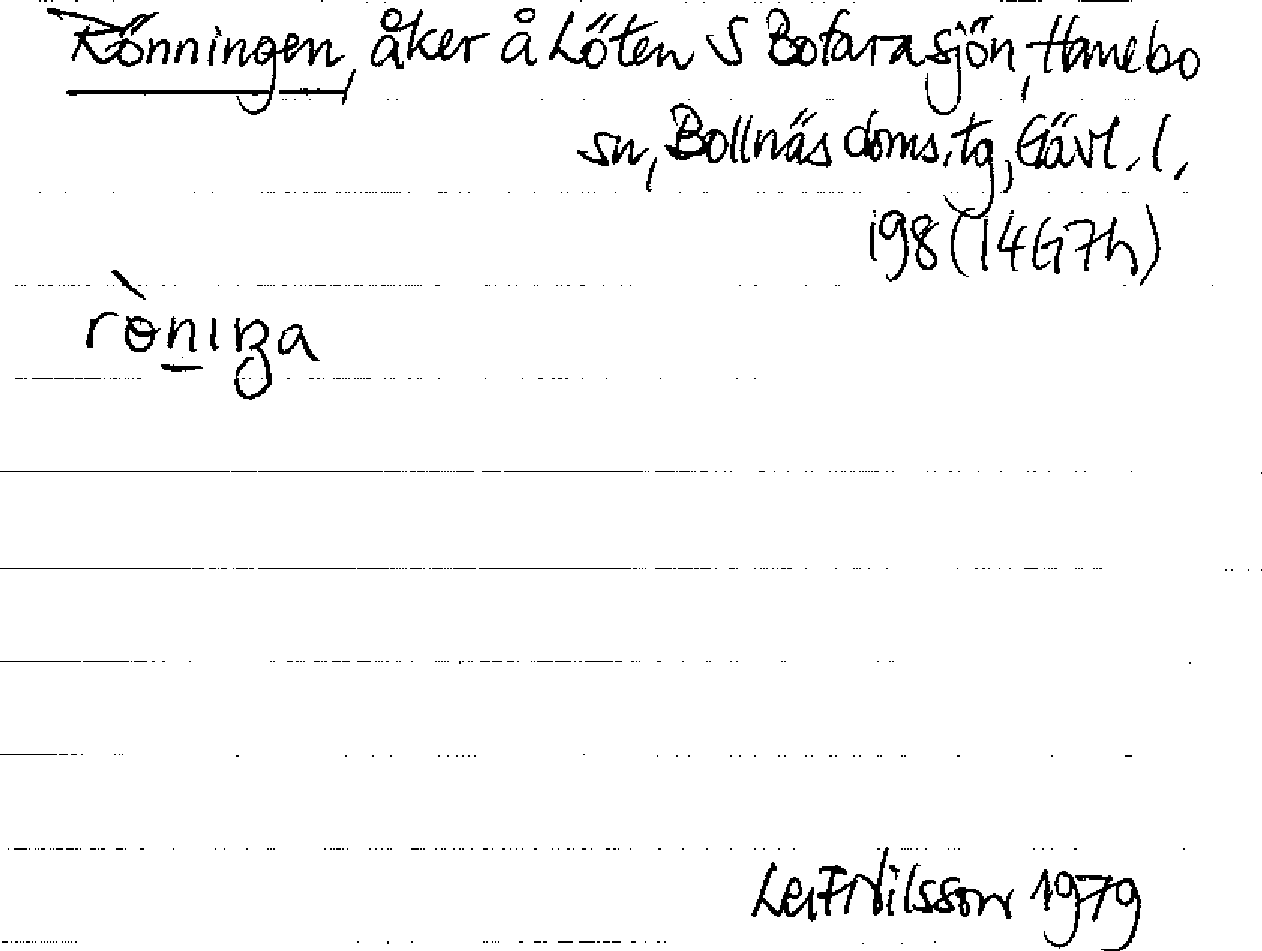 Rönningen, åker å Löten S Bofarasjön, Hanebo
sn, Bollnäs doms.tg, Gävl. l.
198 (14G7h)
rò̱nıŋa
Leif Nilsson 1979